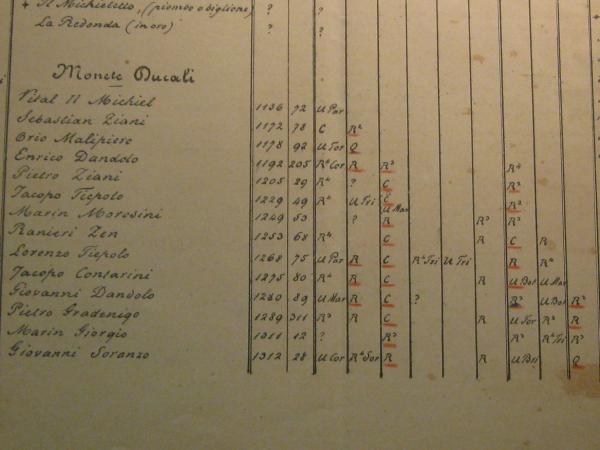 + Il Michieletto, (piombo o biglione) ? ?
La Redonda (in oro) ? ?
Monete Ducali
Vital II Michiel 1156 72 U Par
Sebastian Ziani 1172 78 C R²
Orio Malipiero 1178 92 U Tor Q
Enrico Dandolo 1192 205 R⁴ Cor R R³ R⁴
Pietro Ziani 1205 29 R⁴ ? C R²
Jacopo Tiepolo 1229 49 R⁴ U Tri C U Mar R²
Marin Morosini 1249 53 ? R R³ R³
Ranieri Zen 1253 68 R⁴ C R C R
Lorenzo Tiepolo 1268 75 U Par R C R⁴ Tri U Tri R R⁴
Jacopo Contarini 1275 80 R⁴ R C R U Bot U Mar
Giovanni Dandolo 1280 89 U Mar R C ? R² U Bot R²
Pietro Gradenigo 1289 311 R³ R C R U Tor R² R
Marin Giorgio 1311 12 ? R³ R³ R⁴ Tri R³
Giovanni Soranzo 1312 28 U Cor R⁴ Sor R R U Bri Q